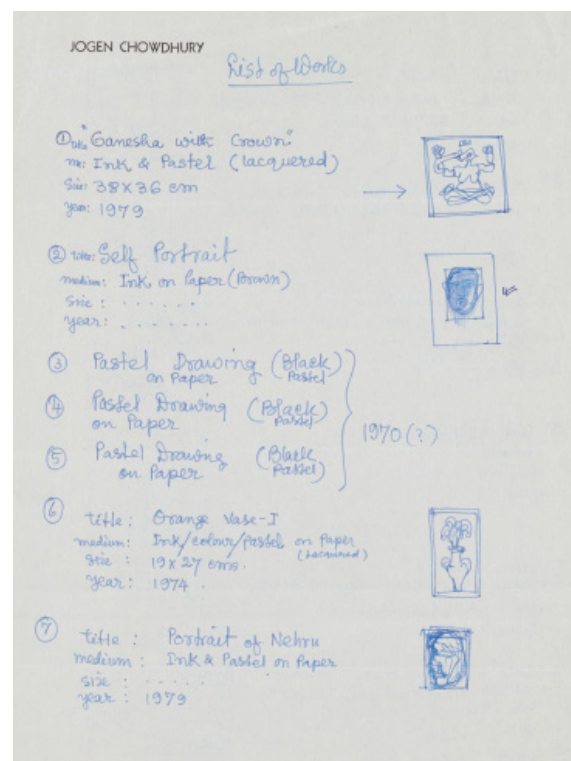 JOGEN CHOWDHURY
List of Works
① title "Ganesha with Crown"
me: Ink & Pastel (lacquered)
Size: 38X36 cm
year: 1979
② title: Self Portrait
medium: Ink on Paper (Brown)
Size : . . . . . .
year: . . . . . . .
③ Pastel Drawing (Black Pastel)
on Paper
④ Pastel Drawing (Black Pastel)
on Paper
⑤ Pastel Drawing (Black Pastel)
on Paper
1970 (?)
⑥ title : Orange Vase-I
medium: Ink/colour/Pastel on Paper
(Lacquired)
Size : 19 x 27 cms.
Year: 1974 .
⑦ title : Portrait of Nehru
medium : Ink & Pastel on Paper
size : . . . . .
year : 1979